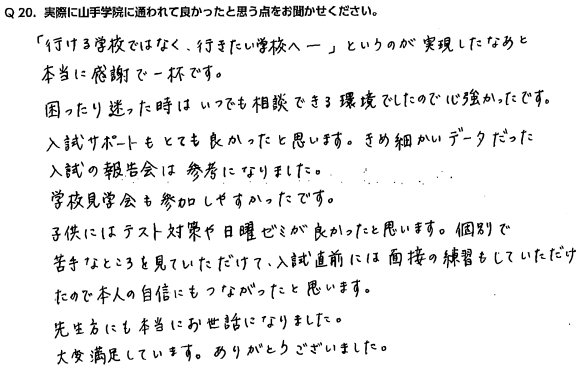 Q 20. 実際に山手学院に通われて良かったと思う点をお聞かせください。
「行ける学校ではなく、行きたい学校へ―」というのが実現したなあと
本当に感謝で一杯です。
困ったり迷った時はいつでも相談できる環境でしたので心強かったです。
入試サポートもとても良かったと思います。きめ細かいデータだった
入試の報告会は参考になりました。
学校見学会も参加しやすかったです。
子供にはテスト対策や日曜ゼミが良かったと思います。個別で
苦手なところを見ていただけて、入試直前には面接の練習もしていただけ
たので本人の自信にもつながったと思います。
先生方にも本当にお世話になりました。
大変満足しています。ありがとうございました。